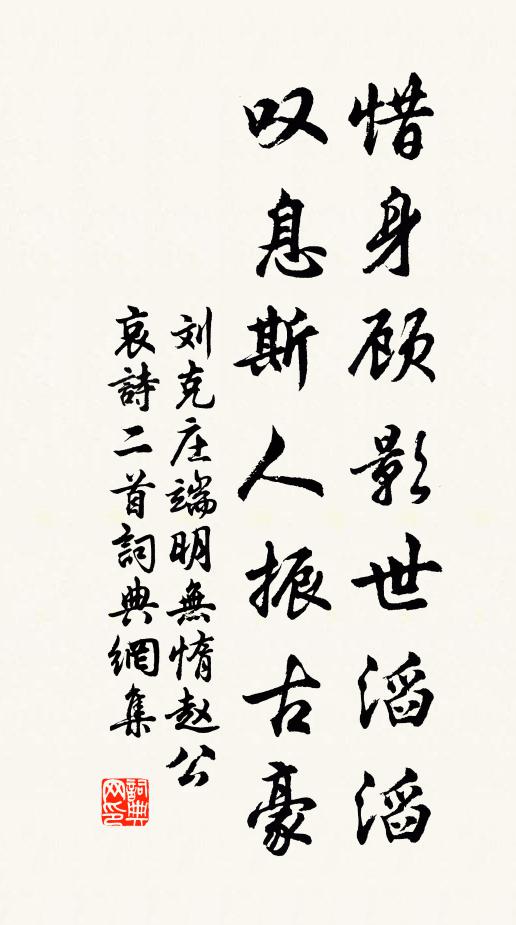 惜身顾影世滔滔
叹息斯人振古豪
刘克庄端明無惰赵公
哀詩二首詞典網集
詞典
网印